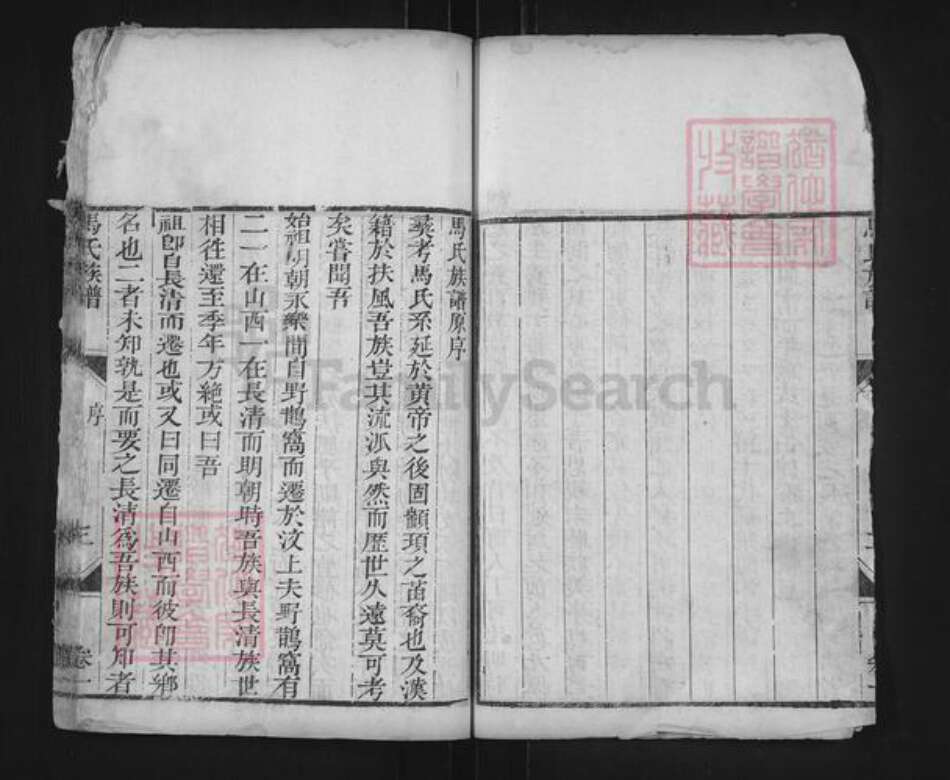 馬氏族譜
馬氏族譜原序
羙考馬氏系延於黄帝之後固顓頊之苗裔也及漢
籍於扶風吾族豈其流派與然而歴世久遠莫可考
矣嘗聞吾
始祖明朝永樂間自野鵲窩而遷於汶上夫野鵲窩有
二一在山西一在長清而明朝時吾族與長清族世
相徃還至季年方絶或曰吾
祖卽自長清而遷也或又曰同遷自山西而彼卽其鄉
名也二者未知孰是而要之長清為吾族則可知者
馬氏族譜
序
三
卷一
FamilySearch